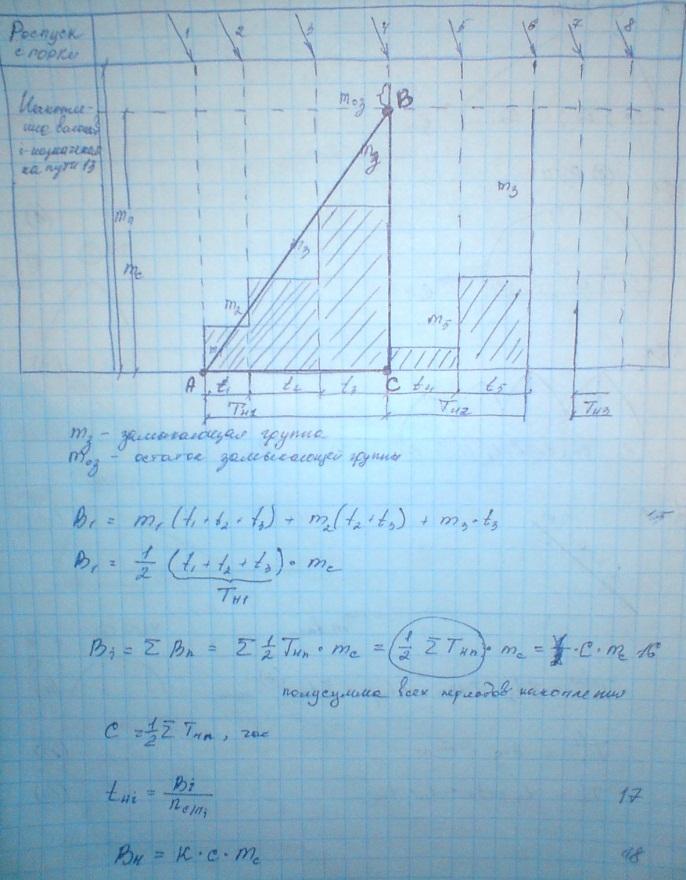 Роспуск
с горки
1 2 3 4 5 6 7 8
Накопле-
ние вагонов
на пути 13
mп
mc
mоз
B
mз
m3
m3
m2
m1
m5
A t1 t2 t3 C t4 t5
Tн1 Tн2 Tн3
mз – замыкающая группа
mоз – остаток замыкающей группы
B1 = m1 (t1 + t2 + t3) + m2 (t2 + t3) + m3 · t3 15
B1 = 1/2 (t1 + t2 + t3) · mc
Tн1
Bi = Σ Bп = Σ 1/2 Tнп · mc = 1/2 Σ Tнп · mc = · C · mc 16
полусумма всех периодов накопления
C = 1/2 Σ Tнп, час
tнi = Bi / nc/mi 17
Bн = K · c · mc 18